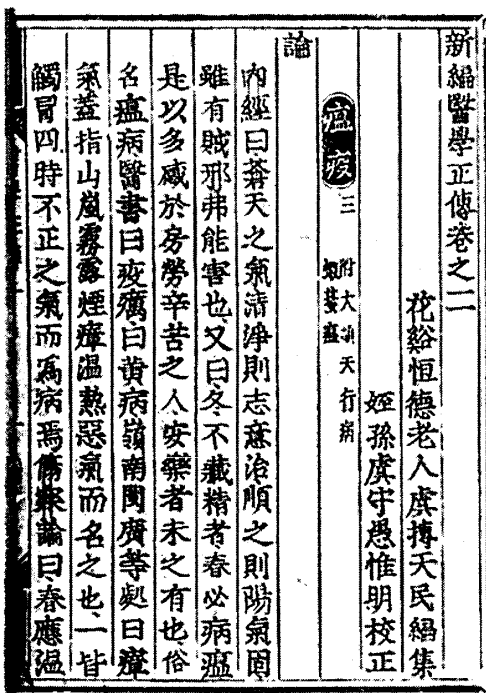 新編醫學正傳卷之二
花谿恒德老人虞摶天民編集
姪孫虞守愚惟明校正
瘟疫 三 附大頭天行病
蝦蟇瘟
論
內經曰蒼天之氣清淨則志意治順之則陽氣固
雖有賊邪弗能害也又曰冬不藏精者春必病瘟
是以多感於房勞辛苦之人安樂者未之有也俗
名瘟病醫書曰疫癘曰黃病嶺南閩廣等處曰瘴
氣蓋指山嵐霧露煙瘴溫熱惡氣而名之也一皆
觸冒四時不正之氣而爲病焉傷寒論曰春應溫